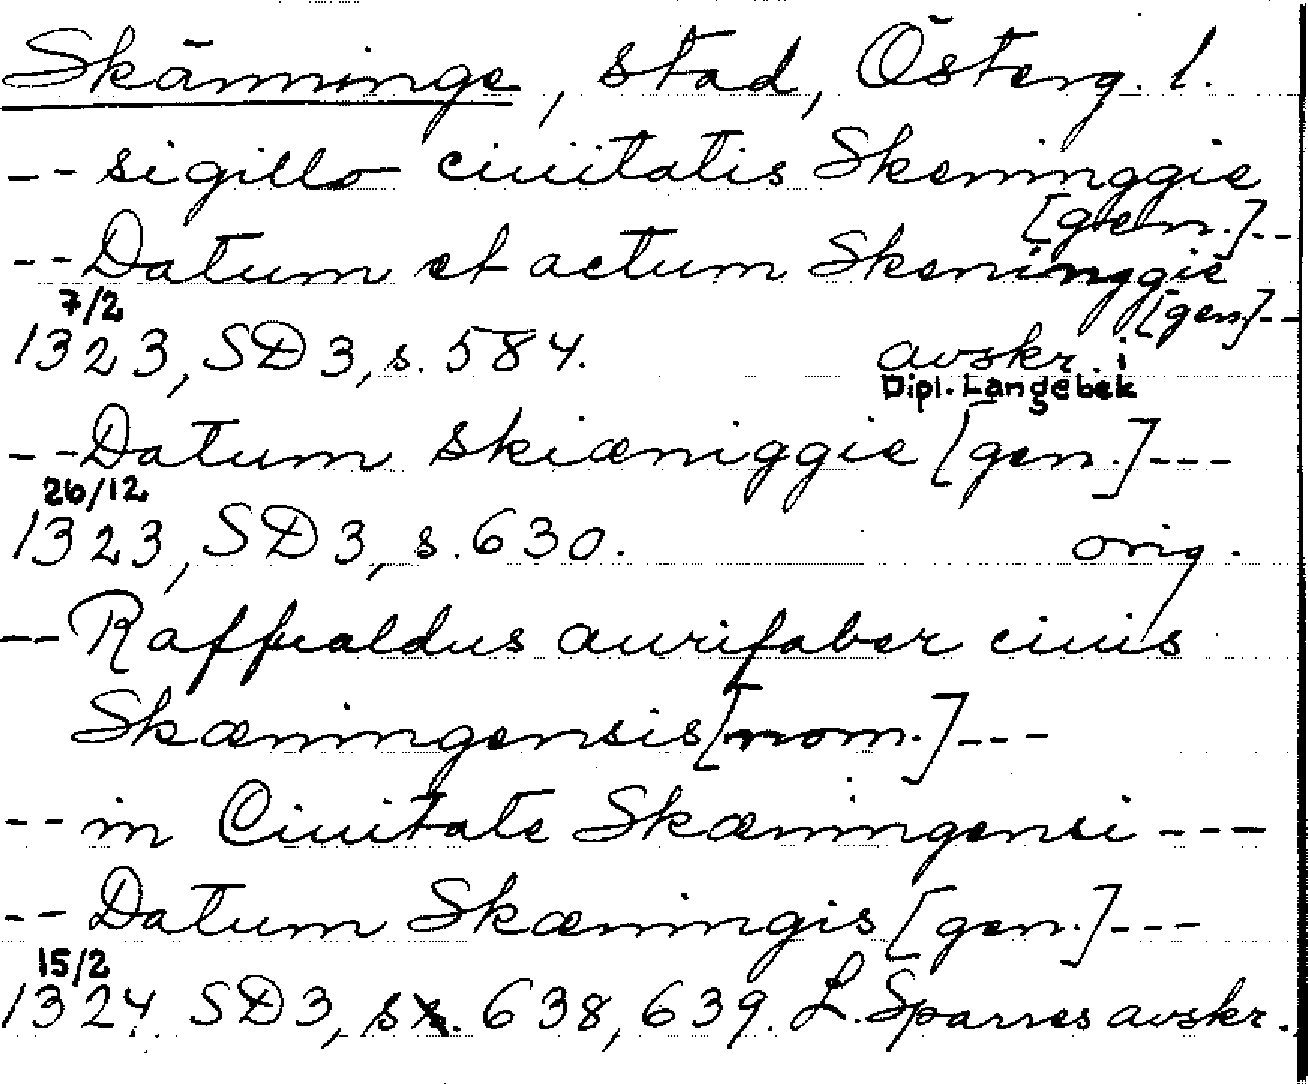 Skänninge, stad, Österg. l.
-- sigillo ciuitatis Skeninggie
[gen.]--
-- Datum et actum Skeninggie
[gen]--
7/2
1323, SD3, s. 584. avskr. i
Dipl. Langebek
-- Datum skiæniggie [gen.]---
26/12
1323, SD3, s. 630. orig.
-- Raffualdus aurifaber ciuis
Skæningensis [nom.]---
-- in Ciuitate Skæningensi ---
-- Datum Skæningis [gen.]---
15/2
1324. SD3, s. 638, 639. L. Sparres avskr.